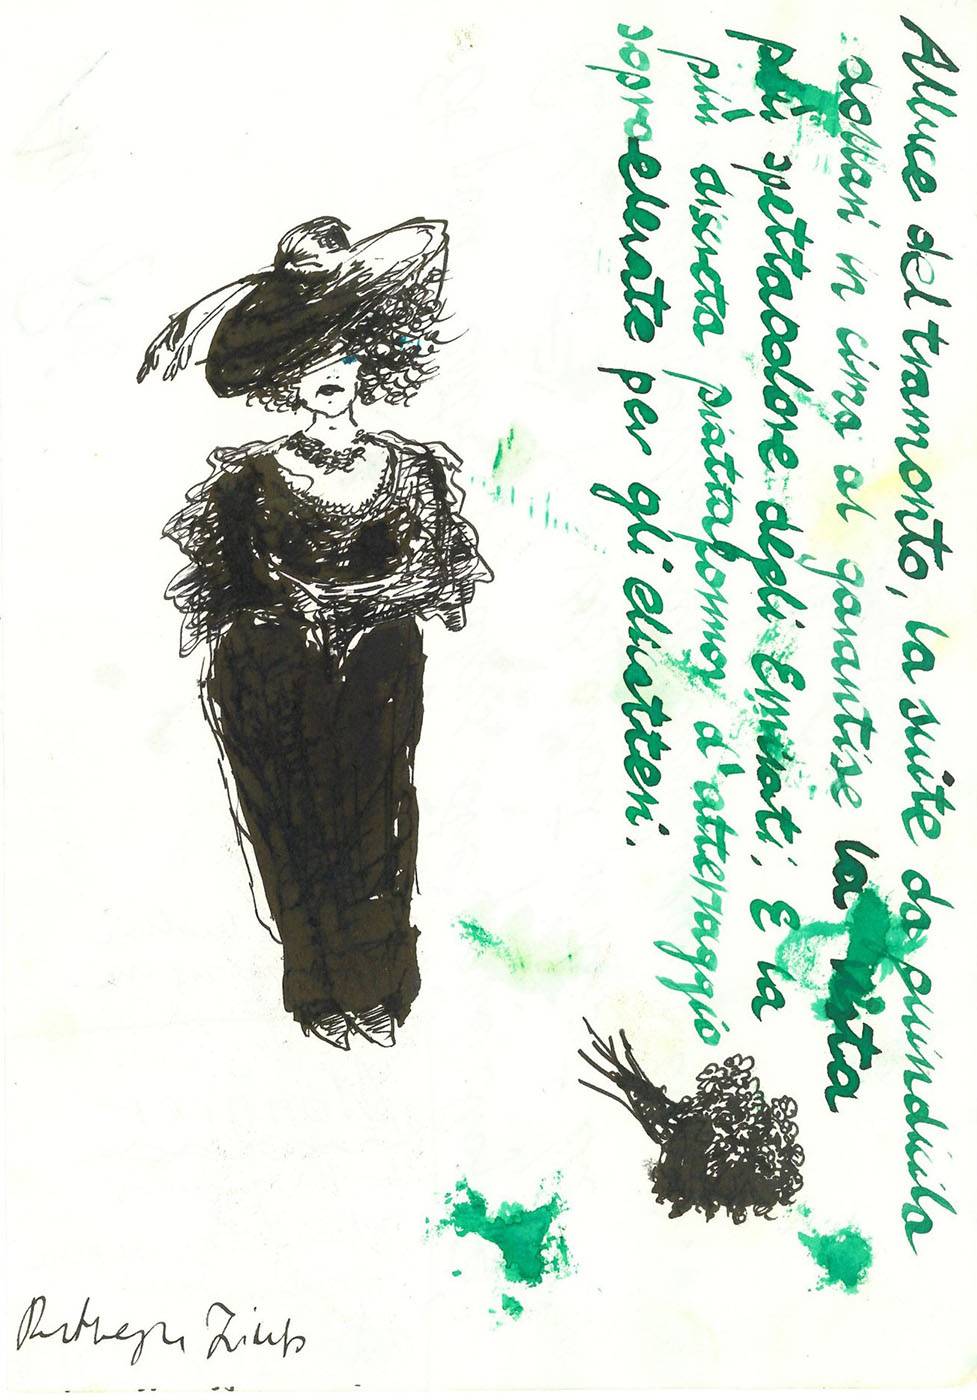 Alluce del tramonto, la suite da quindicila
dollari in cima al garantise la vista
più spettacolare degli Emirati. E la
più discreta piattaforma d'atterraggio
sopraelevata per gli elicotteri.